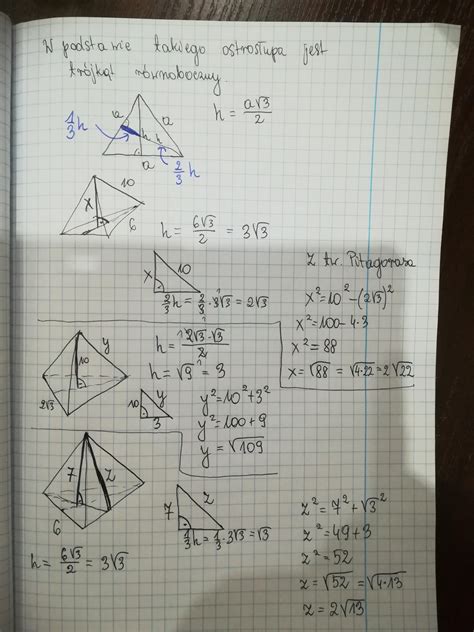 W podstawie takiego ostrosłupa jest
trójkąt równoboczny.
a
a
h = a√3/2
1/3 h
h
h
a
2/3 h
10
x
6
h = 6√3/2 = 3√3
x
10
2/3 h = 2/3 · 3√3 = 2√3
Z tw. Pitagorasa
x² = 10² - (2√3)²
x² = 100 - 4·3
x² = 88
x = √88 = √4·22 = 2√22
y
10
2√3
h = 2√3·√3/2
h = √9 = 3
10
y
3
y² = 10² + 3²
y² = 100 + 9
y = √109
7
z
6
h = 6√3/2 = 3√3
7
z
1/3 h = 1/3 · 3√3 = √3
z² = 7² + √3²
z² = 49 + 3
z² = 52
z = √52 = √4·13
z = 2√13